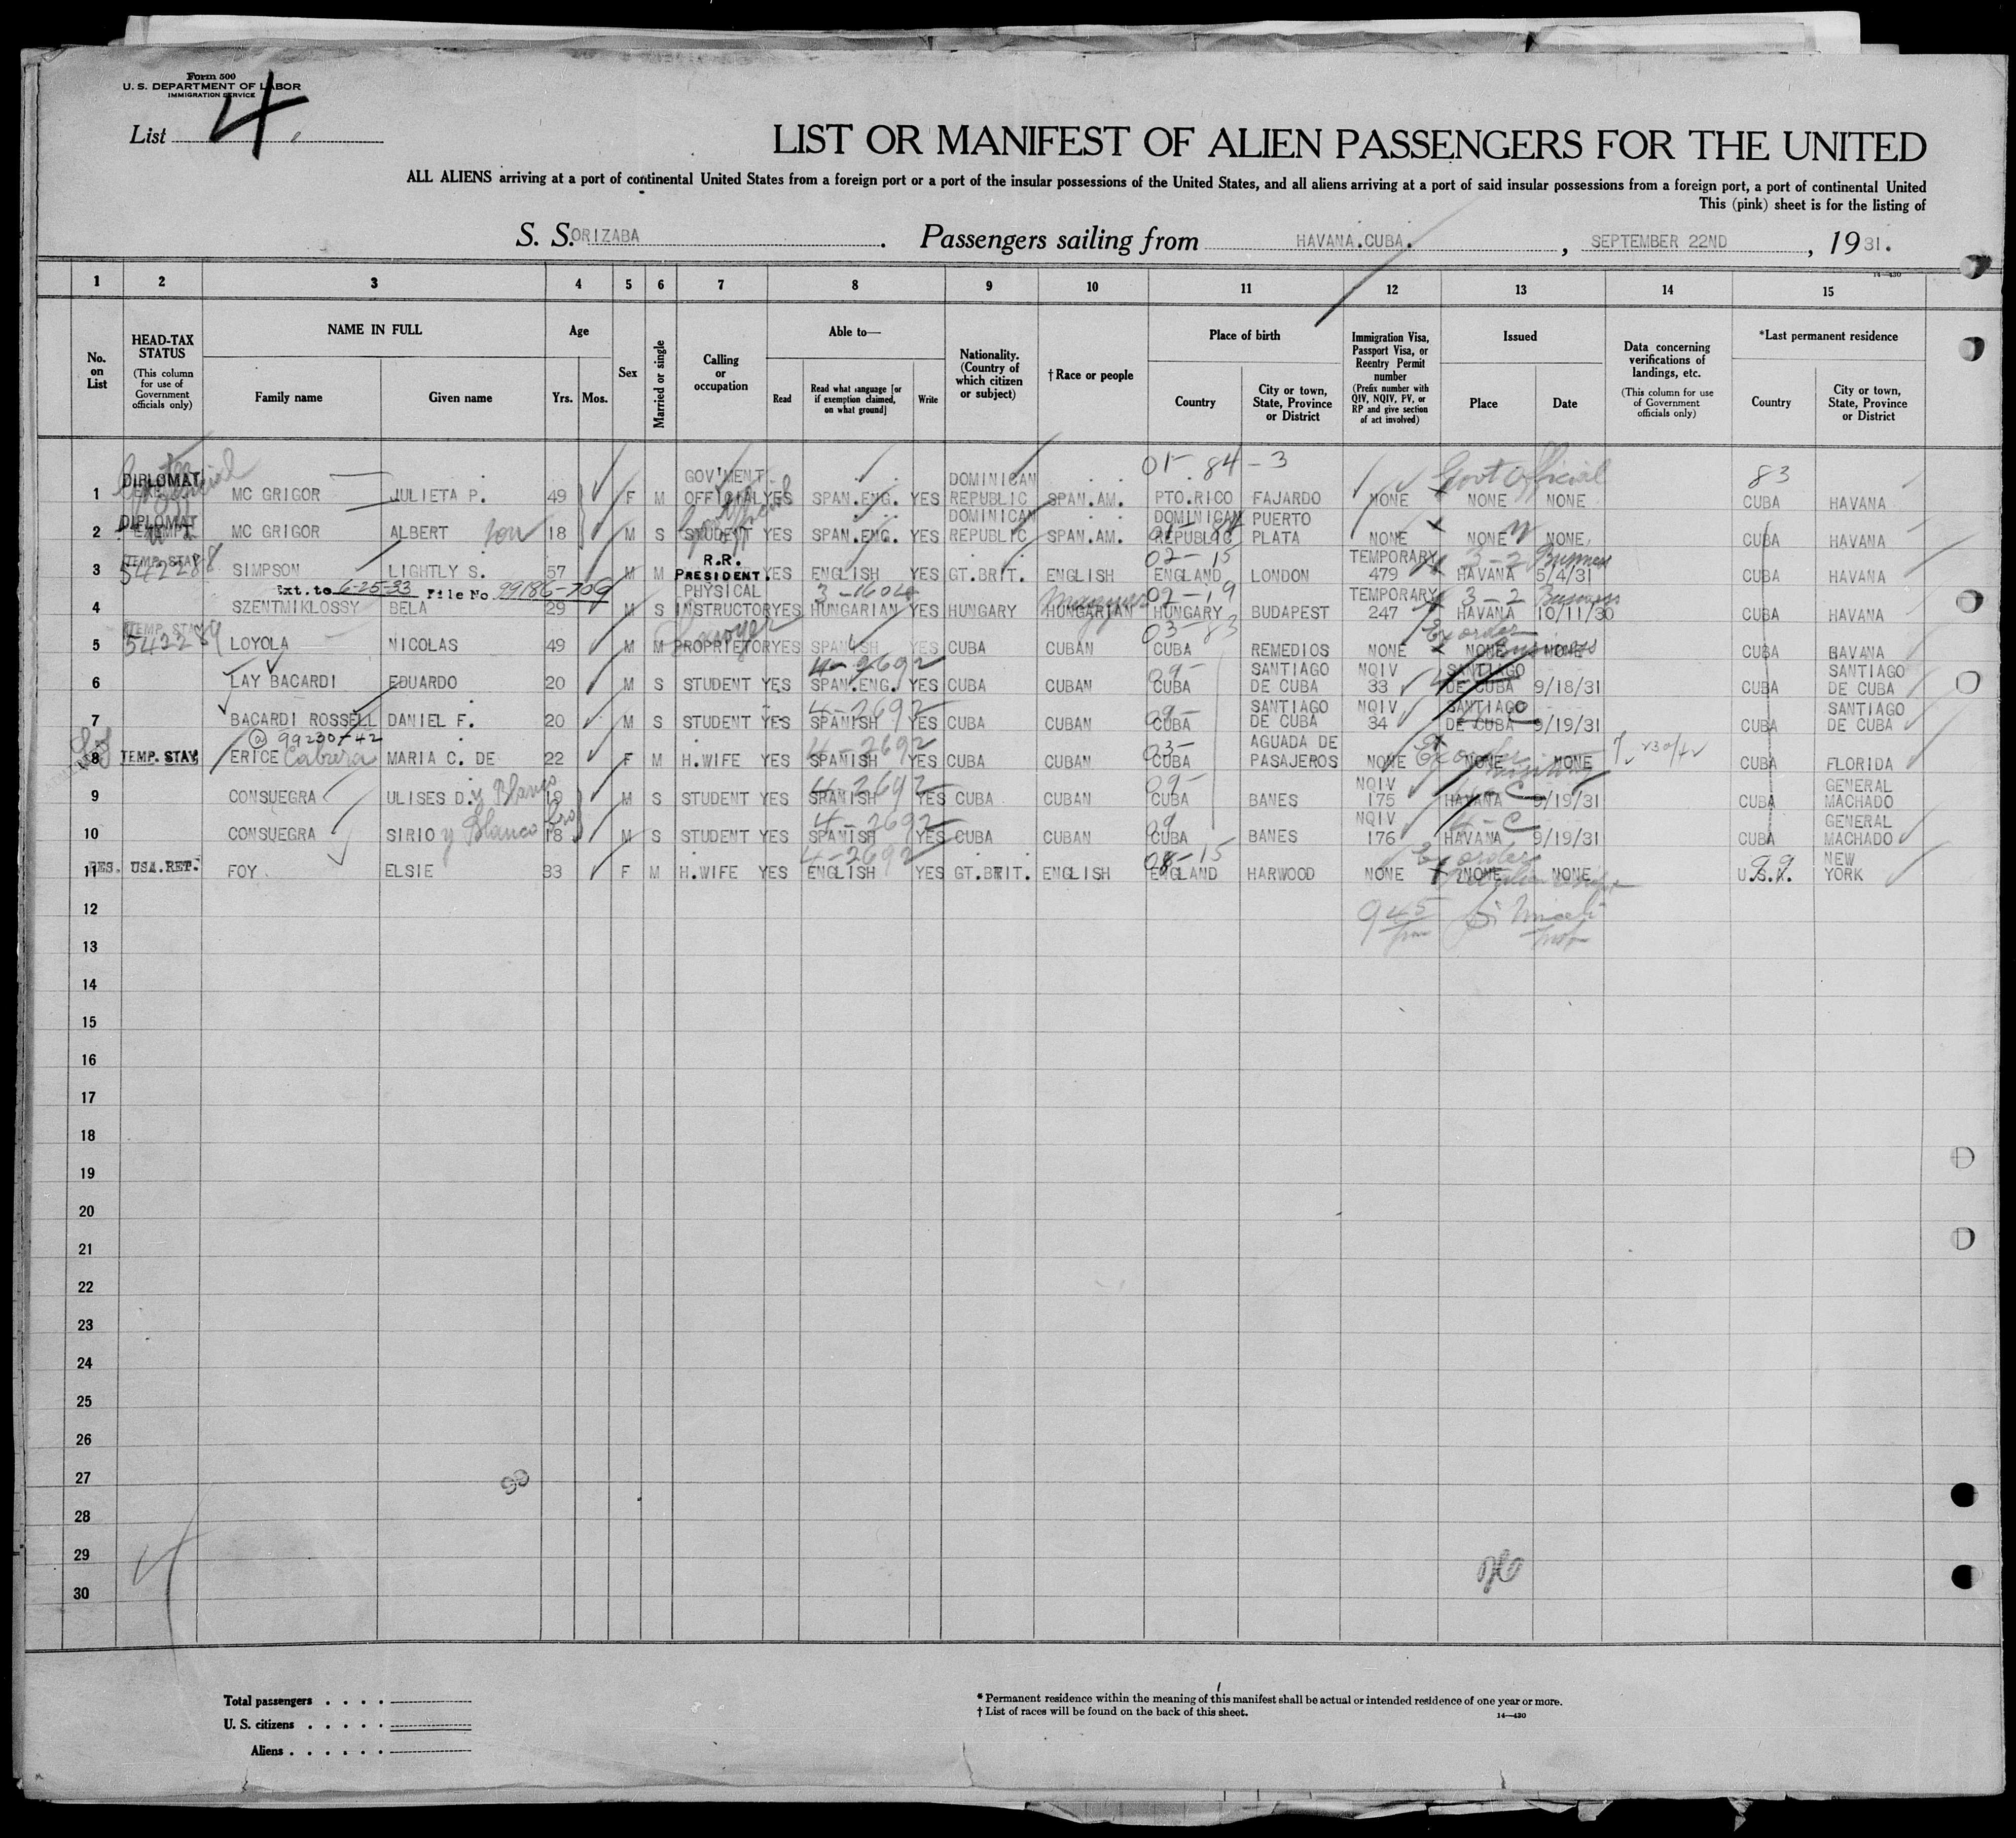 Form 500
U. S. DEPARTMENT OF LABOR
IMMIGRATION SERVICE
List 4
LIST OR MANIFEST OF ALIEN PASSENGERS FOR THE UNITED
ALL ALIENS arriving at a port of continental United States from a foreign port or a port of the insular possessions of the United States, and all aliens arriving at a port of said insular possessions from a foreign port, a port of continental United
This (pink) sheet is for the listing of
S. S. ORIZABA . Passengers sailing from HAVANA.CUBA. , SEPTEMBER 22ND , 1931.
14—430
1 2 3 4 5 6 7 8 9 10 11 12 13 14 15
No. on List
HEAD-TAX STATUS (This column for use of Government officials only)
NAME IN FULL
Family name
Given name
Age
Yrs. Mos.
Sex
Married or single
Calling or occupation
Able to—
Read
Read what language [or if exemption claimed, on what ground]
Write
Nationality. (Country of which citizen or subject)
† Race or people
Place of birth
Country
City or town, State, Province or District
Immigration Visa, Passport Visa, or Reentry Permit number (Prefix number with QIV, NQIV, PV, or RP and give section of act involved)
Issued
Place
Date
Data concerning verifications of landings, etc. (This column for use of Government officials only)
*Last permanent residence
Country
City or town, State, Province or District
01- 84 - 3 Govt Official 83
1 DIPLOMAT MC GRIGOR JULIETA P. 49 F M GOV'MENT OFFICIAL YES SPAN.ENG. YES DOMINICAN REPUBLIC SPAN.AM. PTO.RICO FAJARDO NONE NONE NONE CUBA HAVANA
2 DIPLOMAT MC GRIGOR ALBERT son 18 M S STUDENT YES SPAN.ENG. YES DOMINICAN REPUBLIC SPAN.AM. DOMINICAN REPUBLIC PUERTO PLATA NONE NONE NONE CUBA HAVANA
02-15 3-2 Business
3 TEMP.STAY 542288 SIMPSON LIGHTLY S. 57 M M R.R. PRESIDENT. YES ENGLISH YES GT.BRIT. ENGLISH ENGLAND LONDON TEMPORARY 479 HAVANA 5/4/31 CUBA HAVANA
Ext. to 6-25-33 File No 99186-709 3-1604 Magyar 02-19 3-2 Business
4 SZENTMIKLOSSY BELA 29 M S PHYSICAL INSTRUCTOR YES HUNGARIAN YES HUNGARY HUNGARIAN HUNGARY BUDAPEST TEMPORARY 247 HAVANA 10/11/30 CUBA HAVANA
Lawyer 03-83 Ex order Business
5 542289 LOYOLA NICOLAS 49 M M PROPRIETOR YES SPANISH YES CUBA CUBAN CUBA REMEDIOS NONE NONE NONE CUBA HAVANA
4-2692 09-
6 LAY BACARDI EDUARDO 20 M S STUDENT YES SPAN.ENG. YES CUBA CUBAN CUBA SANTIAGO DE CUBA NQIV 33 SANTIAGO DE CUBA 9/18/31 CUBA SANTIAGO DE CUBA
4-2692 09-
7 BACARDI ROSSELL DANIEL F. 20 M S STUDENT YES SPANISH YES CUBA CUBAN CUBA SANTIAGO DE CUBA NQIV 34 SANTIAGO DE CUBA 9/19/31 CUBA SANTIAGO DE CUBA
@ 99230-42 4-2692 03- Ex order
8 TEMP. STAY ERICE Cabrera MARIA C. DE 22 F M H.WIFE YES SPANISH YES CUBA CUBAN CUBA AGUADA DE PASAJEROS NONE NONE NONE CUBA FLORIDA
4-2692 09- 4-C
9 CONSUEGRA ULISES D. y Blanco 19 M S STUDENT YES SPANISH YES CUBA CUBAN CUBA BANES NQIV 175 HAVANA 9/19/31 CUBA GENERAL MACHADO
4-2692 09 4-C
10 CONSUEGRA SIRIO y Blanco bro 18 M S STUDENT YES SPANISH YES CUBA CUBAN CUBA BANES NQIV 176 HAVANA 9/19/31 CUBA GENERAL MACHADO
4-2692 08-15 Ex order 99
11 RES. USA.RET. FOY ELSIE 33 F M H.WIFE YES ENGLISH YES GT.BRIT. ENGLISH ENGLAND HARWOOD NONE NONE NONE U.S.A. NEW YORK
12 9 45 pm
13
14
15
16
17
18
19
20
21
22
23
24
25
26
27
28
29
30
Total passengers . . . .
U. S. citizens . . . . .
Aliens . . . . . .
* Permanent residence within the meaning of this manifest shall be actual or intended residence of one year or more.
† List of races will be found on the back of this sheet.
14—430